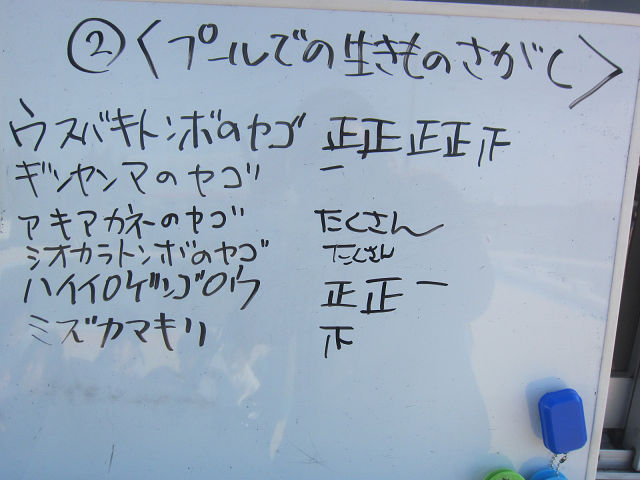 ②〈プールでの生きものさがし〉
ウスバキトンボのヤゴ 正正正正下
ギンヤンマのヤゴ 一
アキアカネのヤゴ たくさん
シオカラトンボのヤゴ たくさん
ハイイロゲンゴロウ 正正一
ミズカマキリ 下